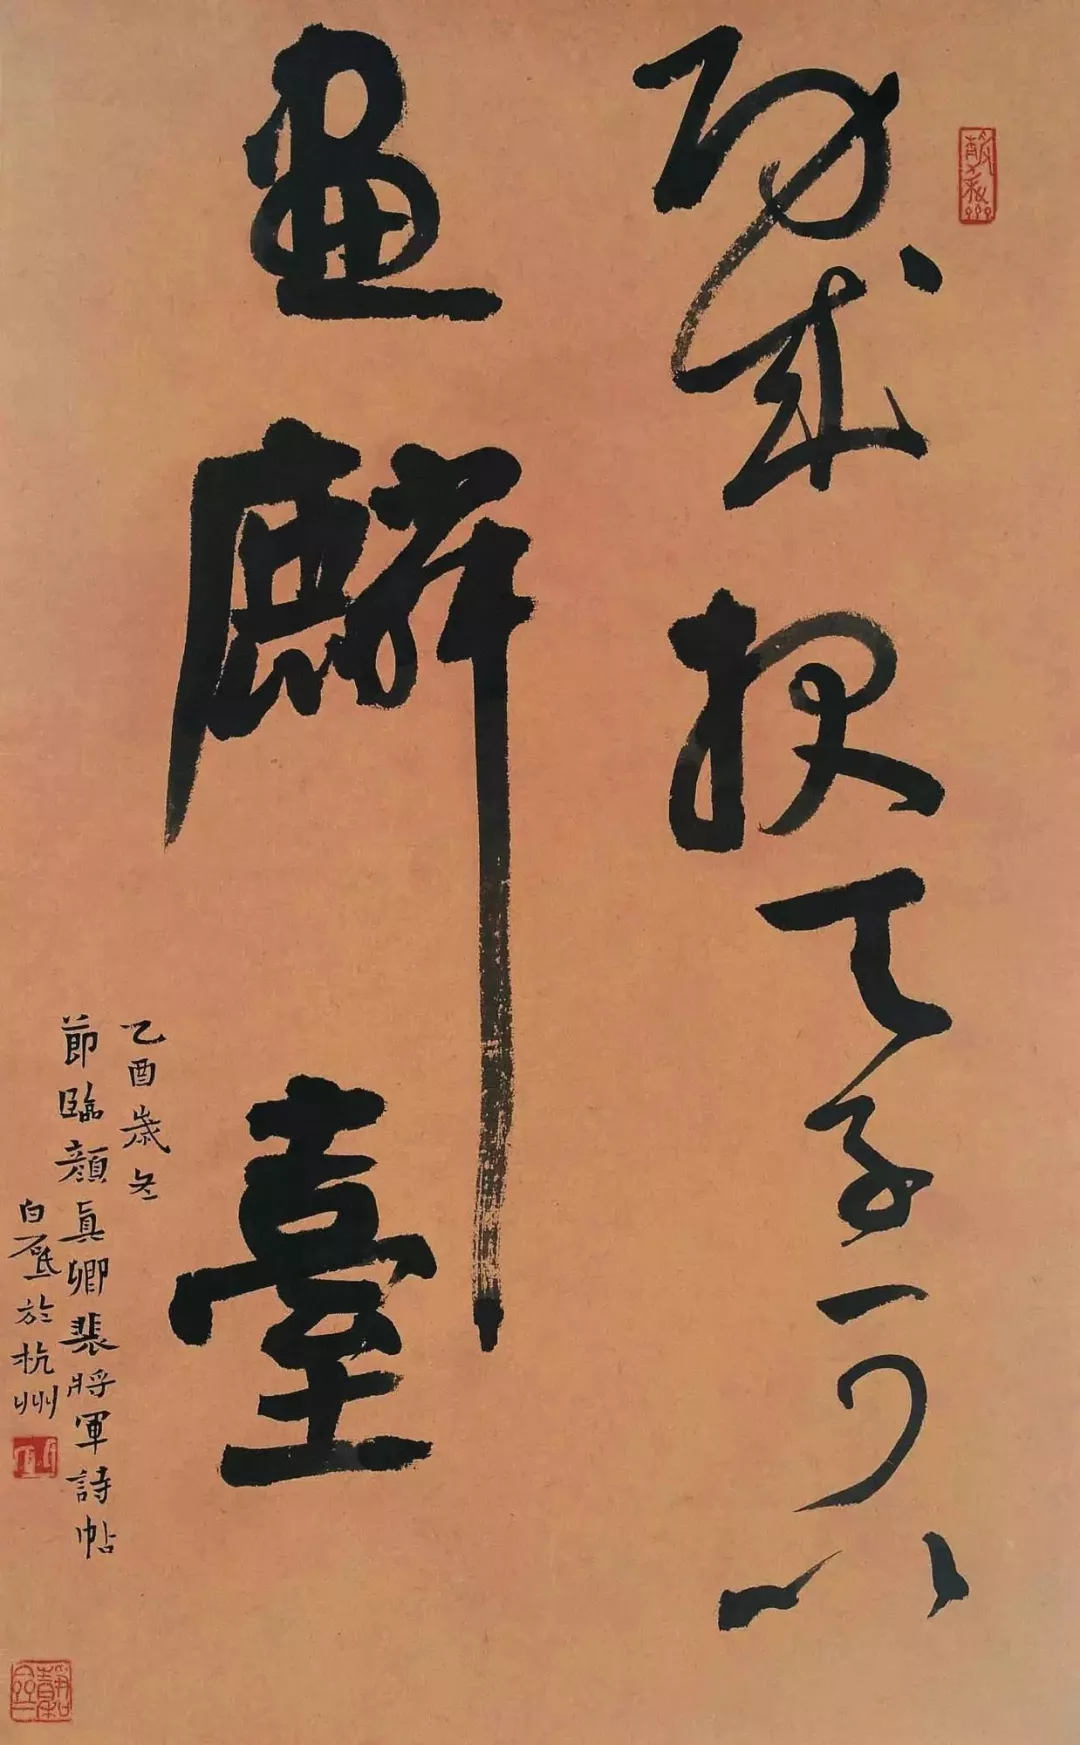 功成报天子可以
画麟臺
乙酉歲冬
節臨顏真卿裴將軍詩帖
白砥於杭州